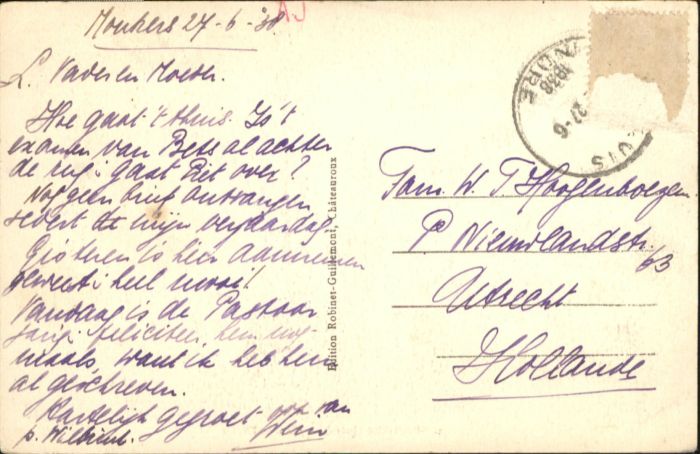 Mouhers 27-6-'38
L. Vader en Moeder.
Hoe gaat 't thuis. Is 't
examen van Bets al achter
de rug, gaat Piet over?
Nog geen brief ontvangen
sedert de mijn verjaardag
Gisteren is hier
geweest; heel mooi!
Vandaag is de Pastoor
jarig, feliciteer hem nog
maals, want ik heb hem
al geschreven.
Hartelijk gegroet ook van
p. Wilbient. Wim
Edition Robinet-Guillemont, Châteauroux
Fam. W. T. Hoogenboezem
P Nieuwlandstr.
63
Utrecht
Hollande
1938
27-6